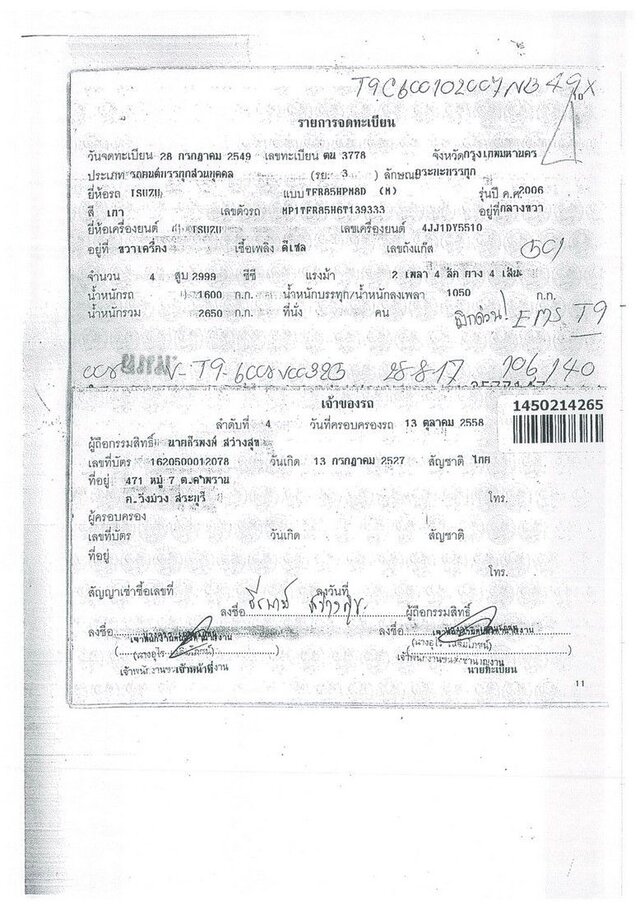 T9C600102007NB 49X
10
รายการจดทะเบียน
วันจดทะเบียน 28 กรกฎาคม 2549 เลขทะเบียน ตน 3778 จังหวัดกรุงเทพมหานคร
ประเภท รถยนต์บรรทุกส่วนบุคคล (รย. 3 ) ลักษณะกระบะบรรทุก
ยี่ห้อรถ ISUZU แบบTFR85HPM8D (M) รุ่นปี ค.ศ.2006
สี เทา เลขตัวรถ MP1TFR85H6T139333 อยู่ที่กลางขวา
ยี่ห้อเครื่องยนต์ ISUZU เลขเครื่องยนต์ 4JJ1DY5510
อยู่ที่ ขวาเครื่อง เชื้อเพลิง ดีเซล เลขถังแก๊ส
จำนวน 4 สูบ 2999 ซีซี แรงม้า 2 เพลา 4 ล้อ ยาง 4 เส้น
น้ำหนักรถ 1600 ก.ก. น้ำหนักบรรทุก/น้ำหนักลงเพลา 1050 ก.ก.
น้ำหนักรวม 2650 ก.ก. ที่นั่ง คน
EMS T9
28-8-17 106/140
เจ้าของรถ
1450214265
ลำดับที่ 4 วันที่ครอบครองรถ 13 ตุลาคม 2558
ผู้ถือกรรมสิทธิ์ สว่างสุข
เลขที่บัตร 1620500012078 วันเกิด 13 กรกฎาคม 2527 สัญชาติ ไทย
ที่อยู่ 471 หมู่ 7 ต.คำพราน
อ.วังม่วง สระบุรี โทร.
ผู้ครอบครอง
เลขที่บัตร วันเกิด สัญชาติ
ที่อยู่
โทร.
สัญญาเช่าซื้อเลขที่ ลงวันที่
ลงชื่อ ผู้ถือกรรมสิทธิ์
ลงชื่อ ลงชื่อ
นายทะเบียน
11